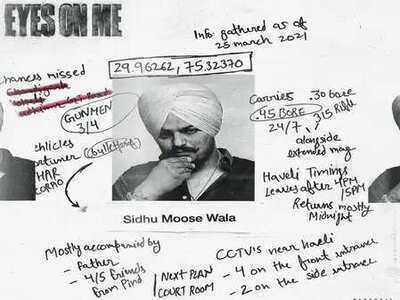 EYES ON ME
Info gathered as of
25 march 2021
29.96262, 75.32370
chances missed
GUNMEN
3/4
ehicles
ortuner
HAR
Carries .30 bore
.45 BORE
.315 Rifle
24/7
alongside
extended mag
Haveli Timings
Leaves after 4PM
/5PM
Returns mostly
Midnight
Sidhu Moose Wala
Mostly accompanied by
- Father
- 4/5 friends
from Pind
NEXT PLAN
COURT ROOM
CCTV's near haveli
- 4 on the front entrance
- 2 on the side entrance